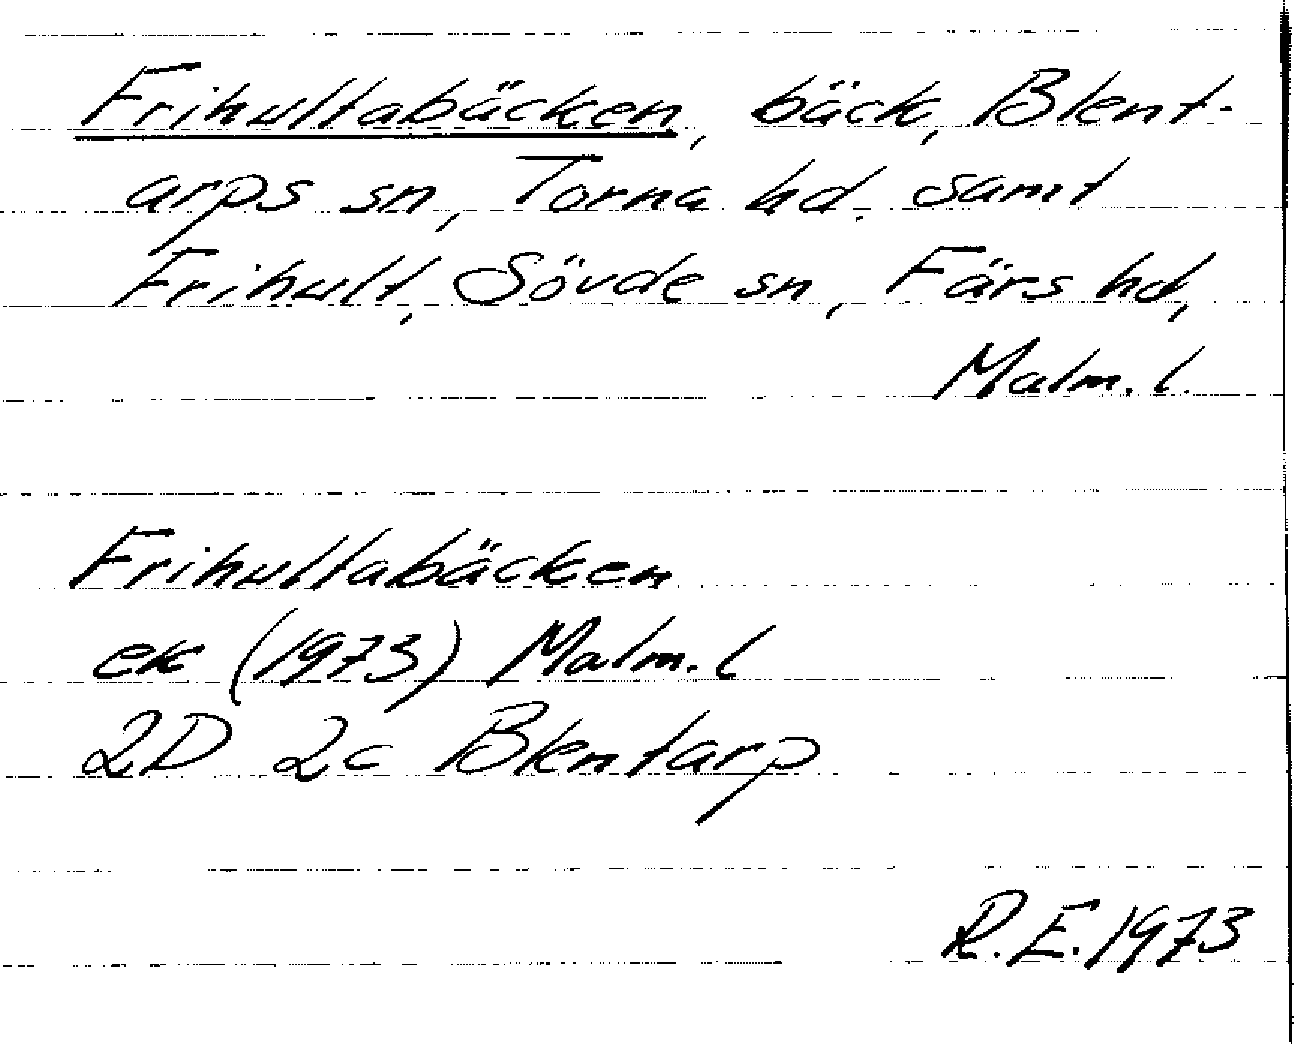 Frihultabäcken, bäck, Blent-
arps sn, Torna hd. samt
Frihult, Sövde sn, Färs hd,
Malm. l.
Frihultabäcken
ek (1973) Malm. l
2D 2c Blentarp
R.E. 1973